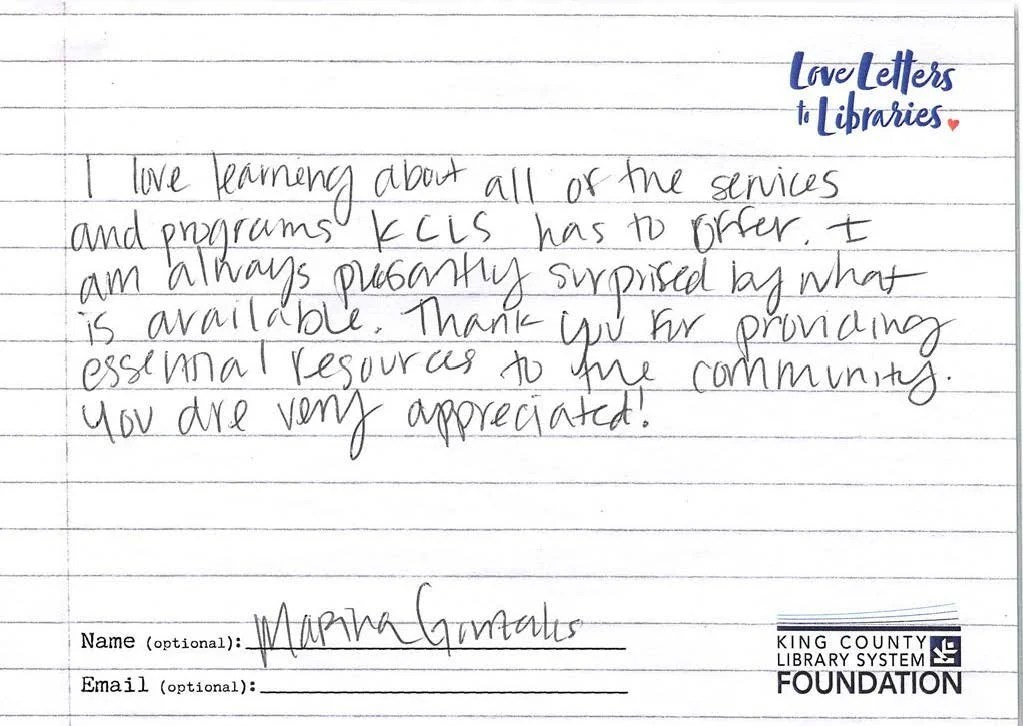 Love Letters
to Libraries
I love learning about all of the services
and programs KCLS has to offer. I
am always pleasantly surprised by what
is available. Thank you for providing
essential resources to the community.
You are very appreciated!
Name (optional): Marina Gonzales
Email (optional):
KING COUNTY
LIBRARY SYSTEM
FOUNDATION